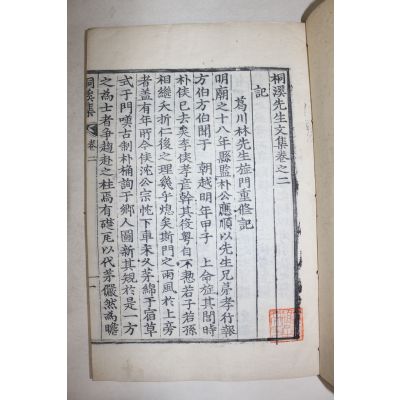 桐溪先生文集卷之二
記
葛川林先生旌門重修記
明廟之十八年縣監朴公應順以先生兄弟孝行報
方伯方伯聞于 朝越明年甲子 上命旌其閭時
朴侯已去矣李侯孝音幹其役粤自不憗若子若孫
相繼夭折仁後之理幾乎熄矣斯門之雨風於上旁
者盖有年所今侯沈公宗忱下車未久茅綿于宿草
式于門嘆古制朴桷詢于鄉人圖新其規於是一方
之爲士者爭趨赴之柱焉有礎瓦以代茅儼然爲瞻
桐溪集
卷二
一